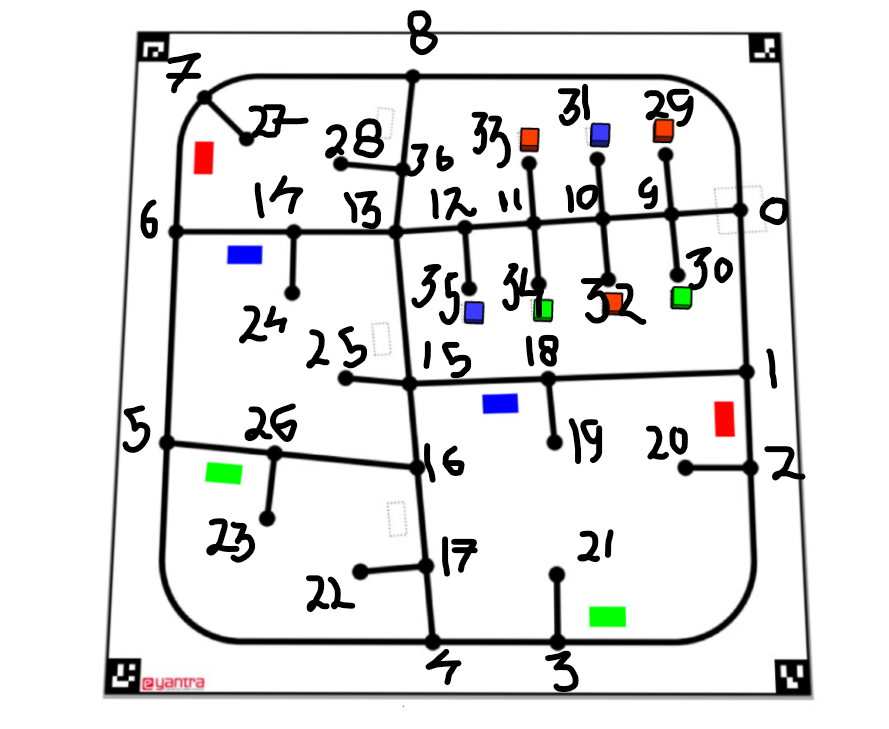 8
7
27
28
36
33
31
29
6
14
13
12
11
10
9
0
24
35
34
32
30
25
15
18
1
5
26
16
19
20
2
23
22
17
21
4
3
eyantra